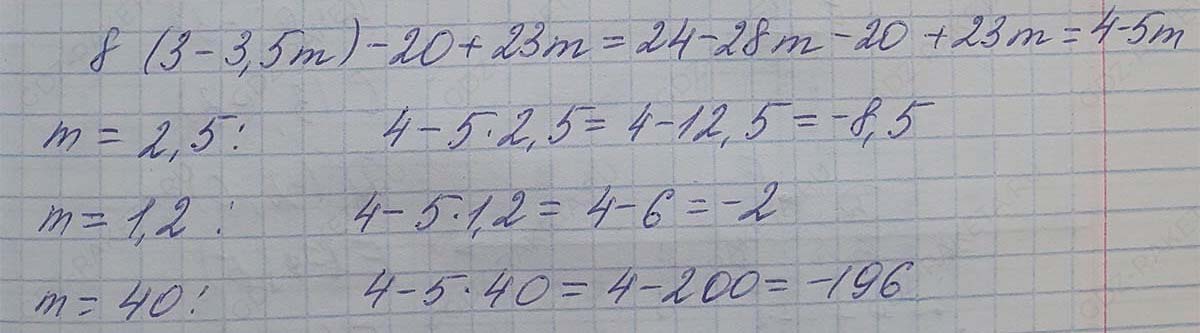 8 (3 - 3,5m) - 20 + 23m = 24 - 28m - 20 + 23m = 4 - 5m
m = 2,5: 4 - 5 · 2,5 = 4 - 12,5 = -8,5
m = 1,2 : 4 - 5 · 1,2 = 4 - 6 = -2
m = 40: 4 - 5 · 40 = 4 - 200 = -196